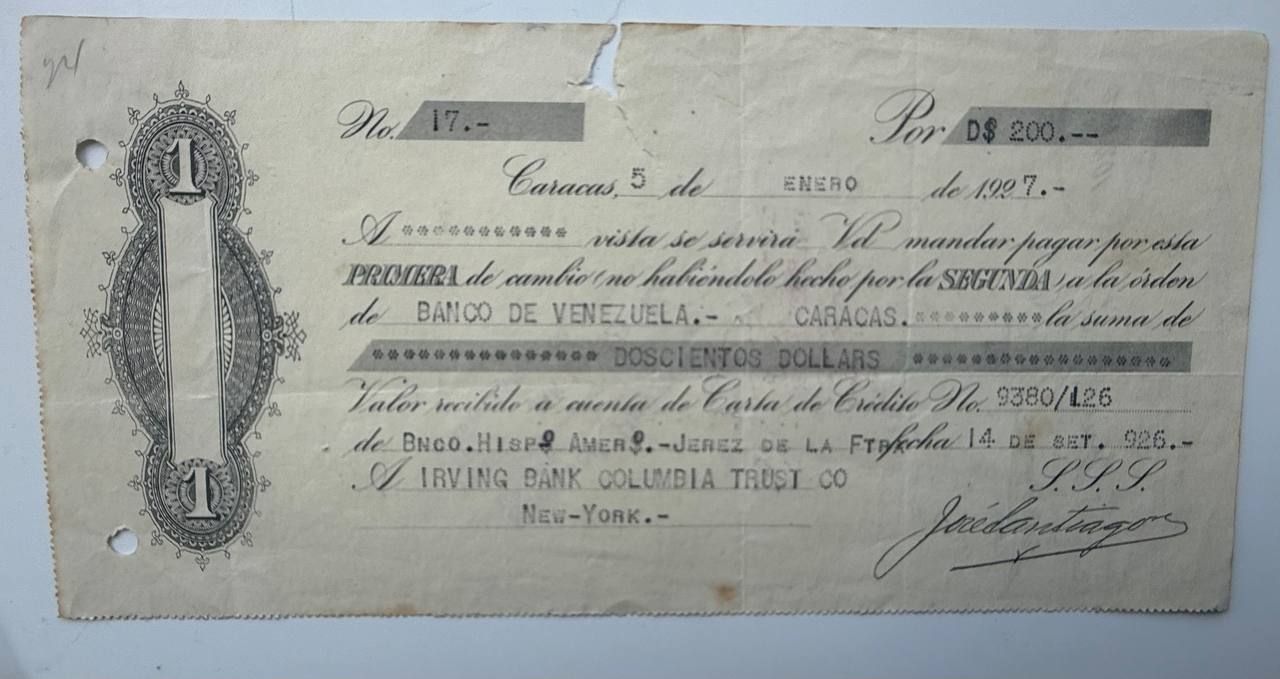 1
No. 17.- Por D$ 200.--
Caracas, 5 de ENERO de 1927.-
A *********** vista se servirá Vd mandar pagar por esta
PRIMERA de cambio (no habiéndolo hecho por la SEGUNDA) a la órden
de BANCO DE VENEZUELA.- CARACAS. ********* la suma de
*************** DOSCIENTOS DOLLARS *****************
Valor recibido a cuenta de Carta de Crédito No. 9380/126
de BNCO. HISPº AMERº.-JEREZ DE LA FTRA fecha 14 DE SET. 926.-
A IRVING BANK COLUMBIA TRUST CO S.S.S.
NEW-YORK.- José Santiago
1